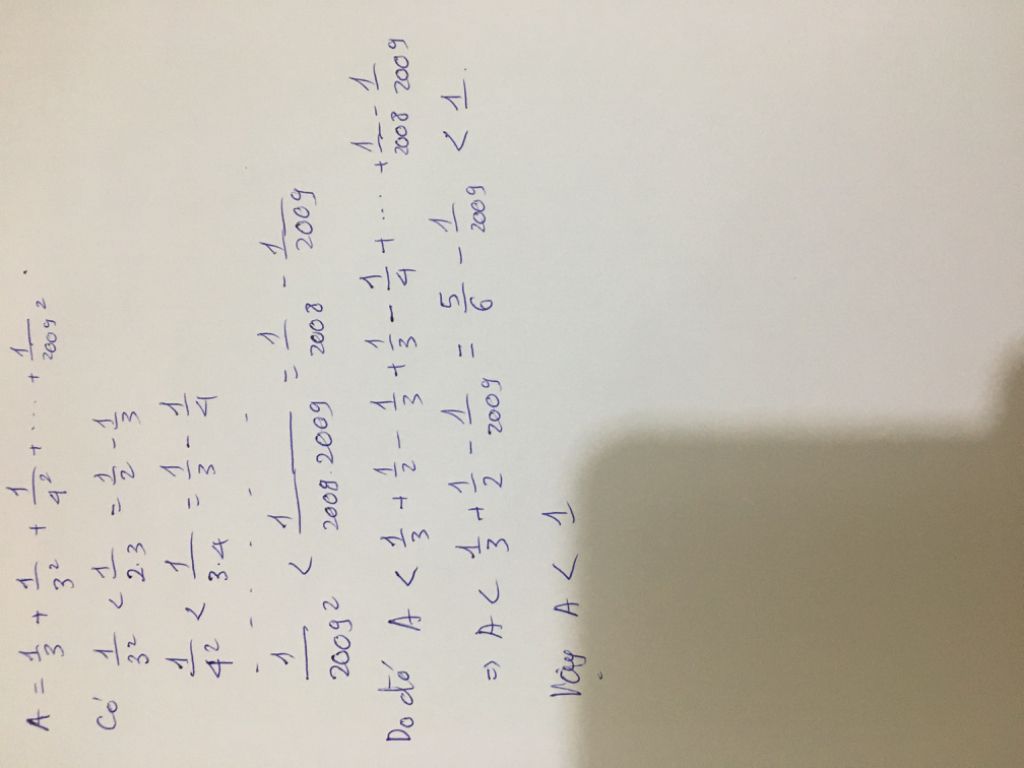 A = 1/3 + 1/3² + 1/4² + ... + 1/2009² .
Có 1/3² < 1/2.3 = 1/2 - 1/3
1/4² < 1/3.4 = 1/3 - 1/4
. - . - . - . -
1/2009² < 1/2008.2009 = 1/2008 - 1/2009
Do đó A < 1/3 + 1/2 - 1/3 + 1/3 - 1/4 + ... + 1/2008 - 1/2009
=> A < 1/3 + 1/2 - 1/2009 = 5/6 - 1/2009 < 1.
Vậy A < 1